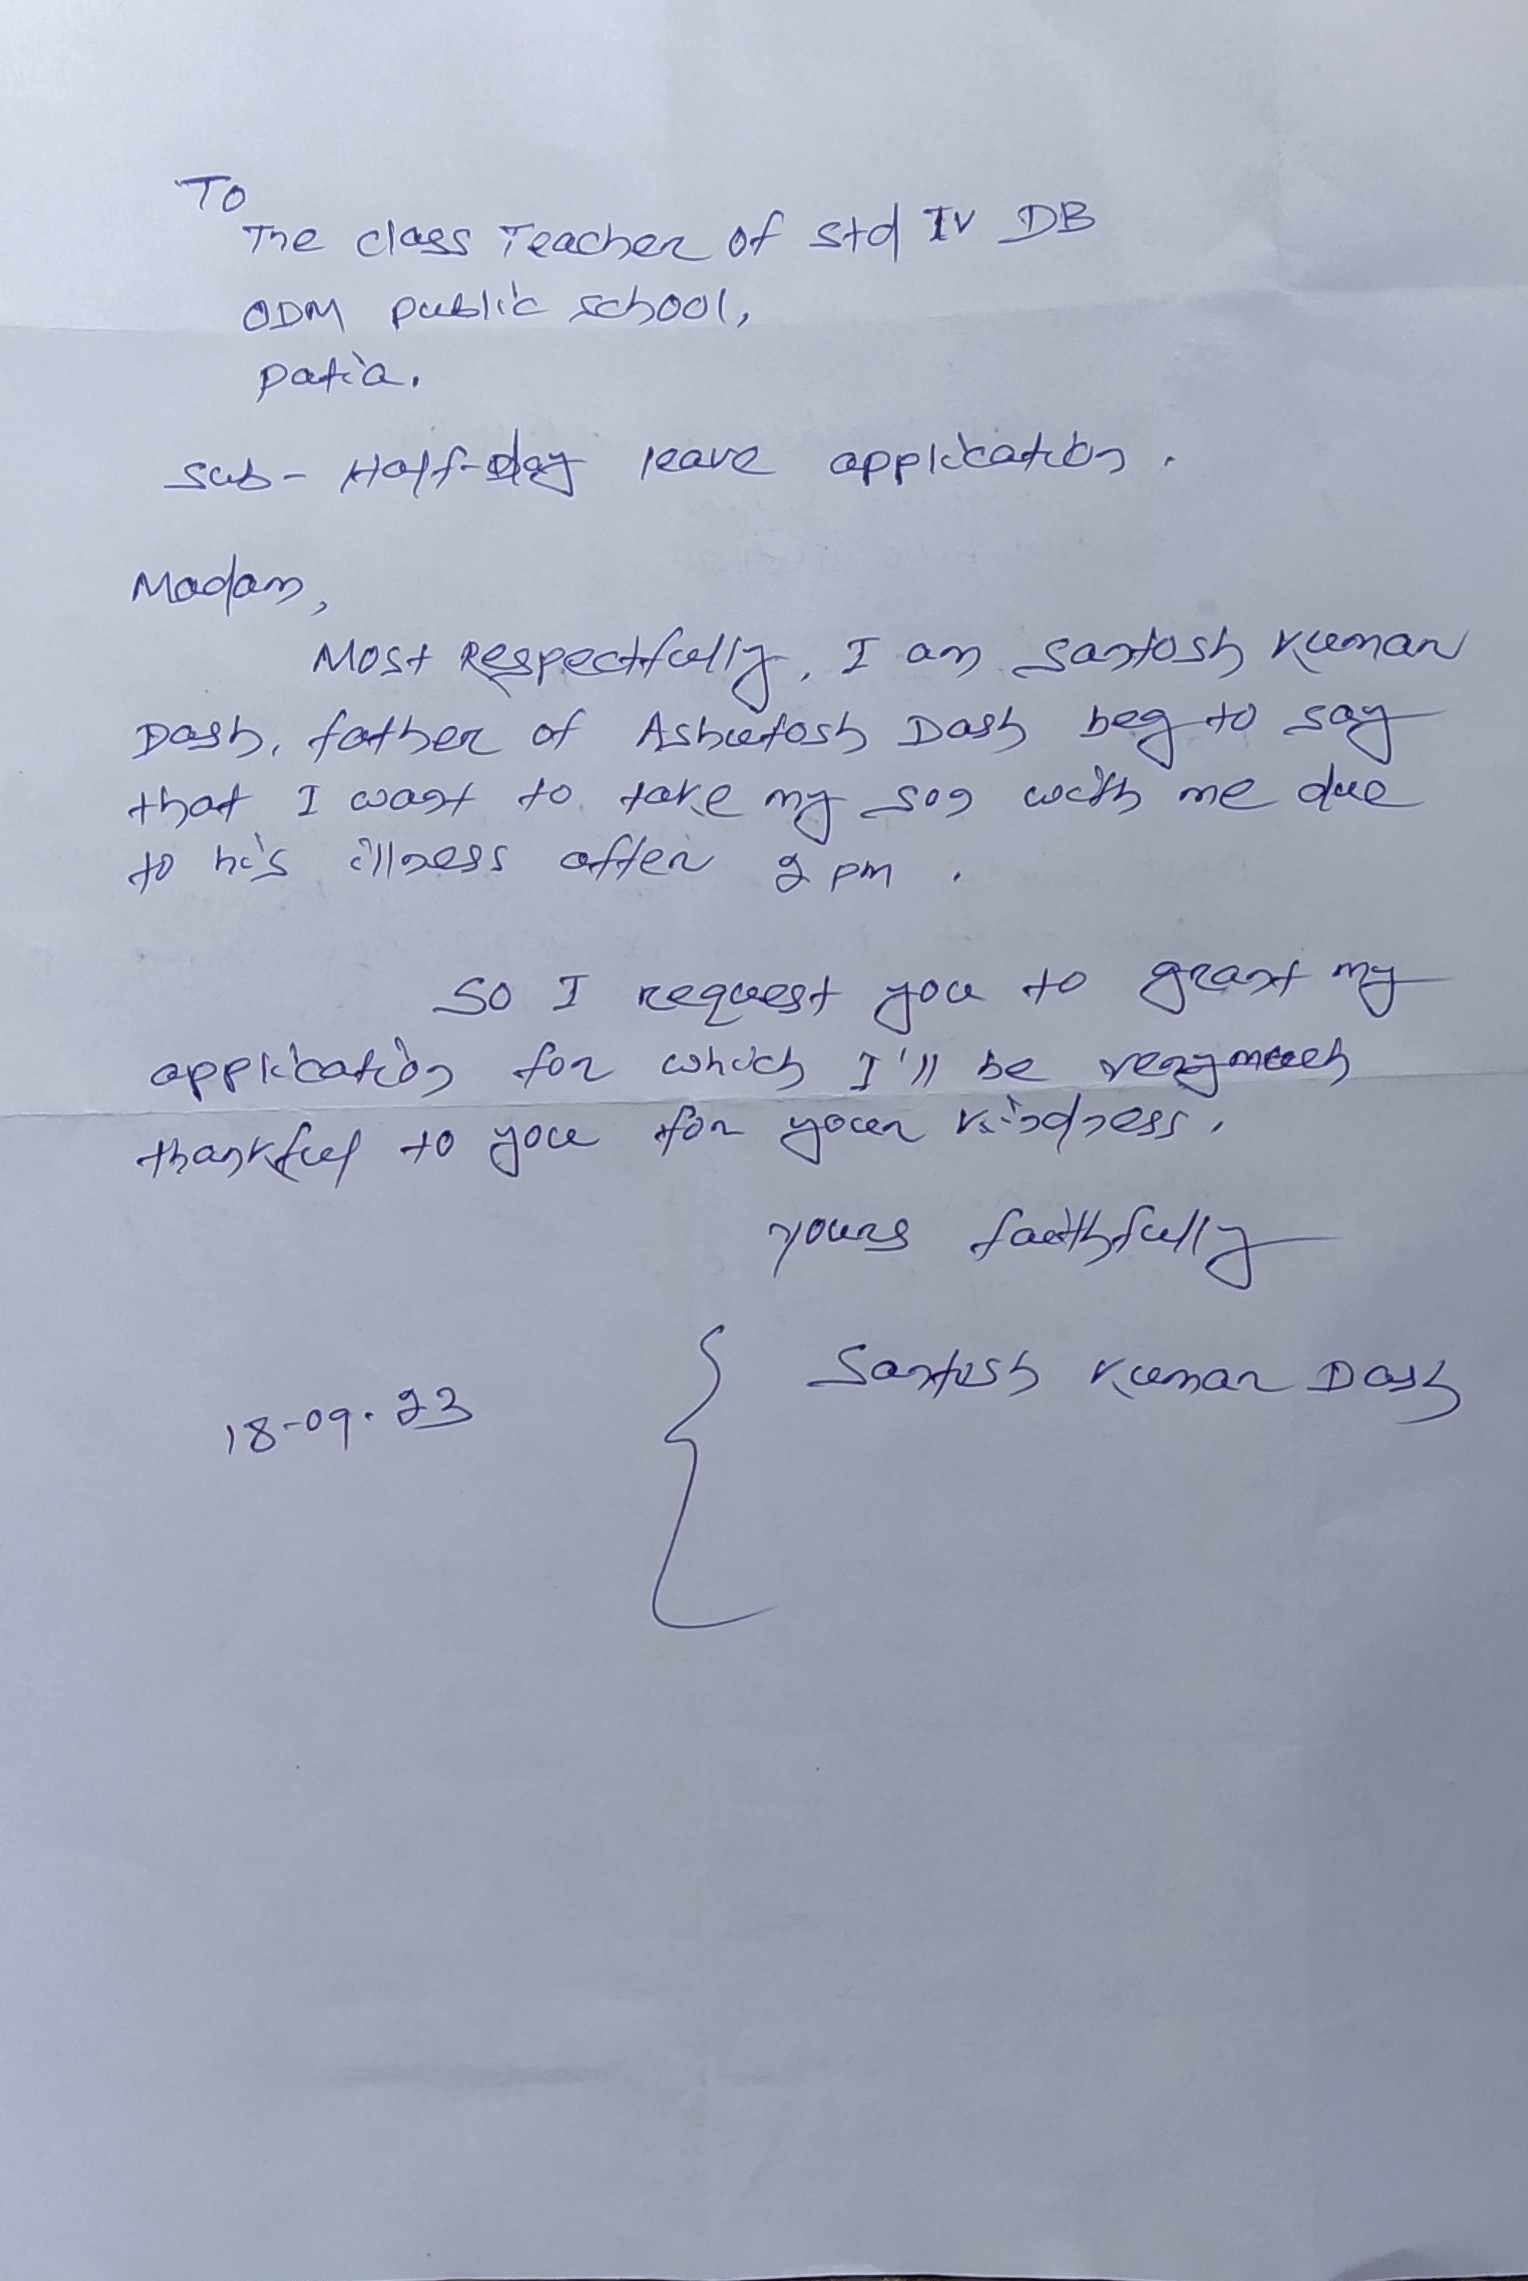 To
The class Teacher of std IV DB
ODM public school,
patia.
Sub- Half-day leave application.
Madam,
Most Respectfully, I am Santosh Kumar
Dash, father of Ashutosh Dash beg to say
that I want to take my son with me due
to his illness after 2 pm.
So I request you to grant my
application for which I'll be very much
thankful to you for your kindness.
yours faithfully
Santosh Kumar Dash
18-09.23